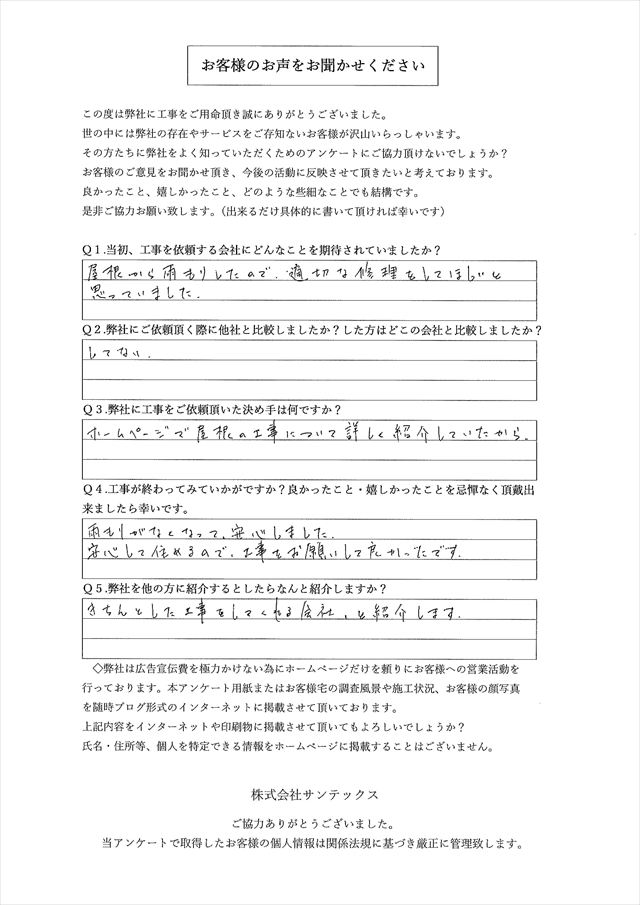 お客様のお声をお聞かせください
この度は弊社に工事をご用命頂き誠にありがとうございました。
世の中には弊社の存在やサービスをご存知ないお客様が沢山いらっしゃいます。
その方たちに弊社をよく知っていただくためのアンケートにご協力頂けないでしょうか？
お客様のご意見をお聞かせ頂き、今後の活動に反映させて頂きたいと考えております。
良かったこと、嬉しかったこと、どのような些細なことでも結構です。
是非ご協力お願い致します。（出来るだけ具体的に書いて頂ければ幸いです）
Q１.当初、工事を依頼する会社にどんなことを期待されていましたか？
屋根から雨もりしたので、適切な修理をしてほしいと
思っていました.
Q２.弊社にご依頼頂く際に他社と比較しましたか？した方はどこの会社と比較しましたか？
してない.
Q３.弊社に工事をご依頼頂いた決め手は何ですか？
ホームページで屋根の工事について詳しく紹介していたから.
Q４.工事が終わってみていかがですか？良かったこと・嬉しかったことを忌憚なく頂戴出
来ましたら幸いです。
雨もりがなくなって、安心しました.
安心して住めるので、工事をお願いして良かったです.
Q５.弊社を他の方に紹介するとしたらなんと紹介しますか？
きちんとした工事をしてくれる会社、と紹介します.
◇弊社は広告宣伝費を極力かけない為にホームページだけを頼りにお客様への営業活動を
行っております。本アンケート用紙またはお客様宅の調査風景や施工状況、お客様の顔写真
を随時ブログ形式のインターネットに掲載させて頂いております。
上記内容をインターネットや印刷物に掲載させて頂いてもよろしいでしょうか？
氏名・住所等、個人を特定できる情報をホームページに掲載することはございません。
株式会社サンテックス
ご協力ありがとうございました。
当アンケートで取得したお客様の個人情報は関係法規に基づき厳正に管理致します。